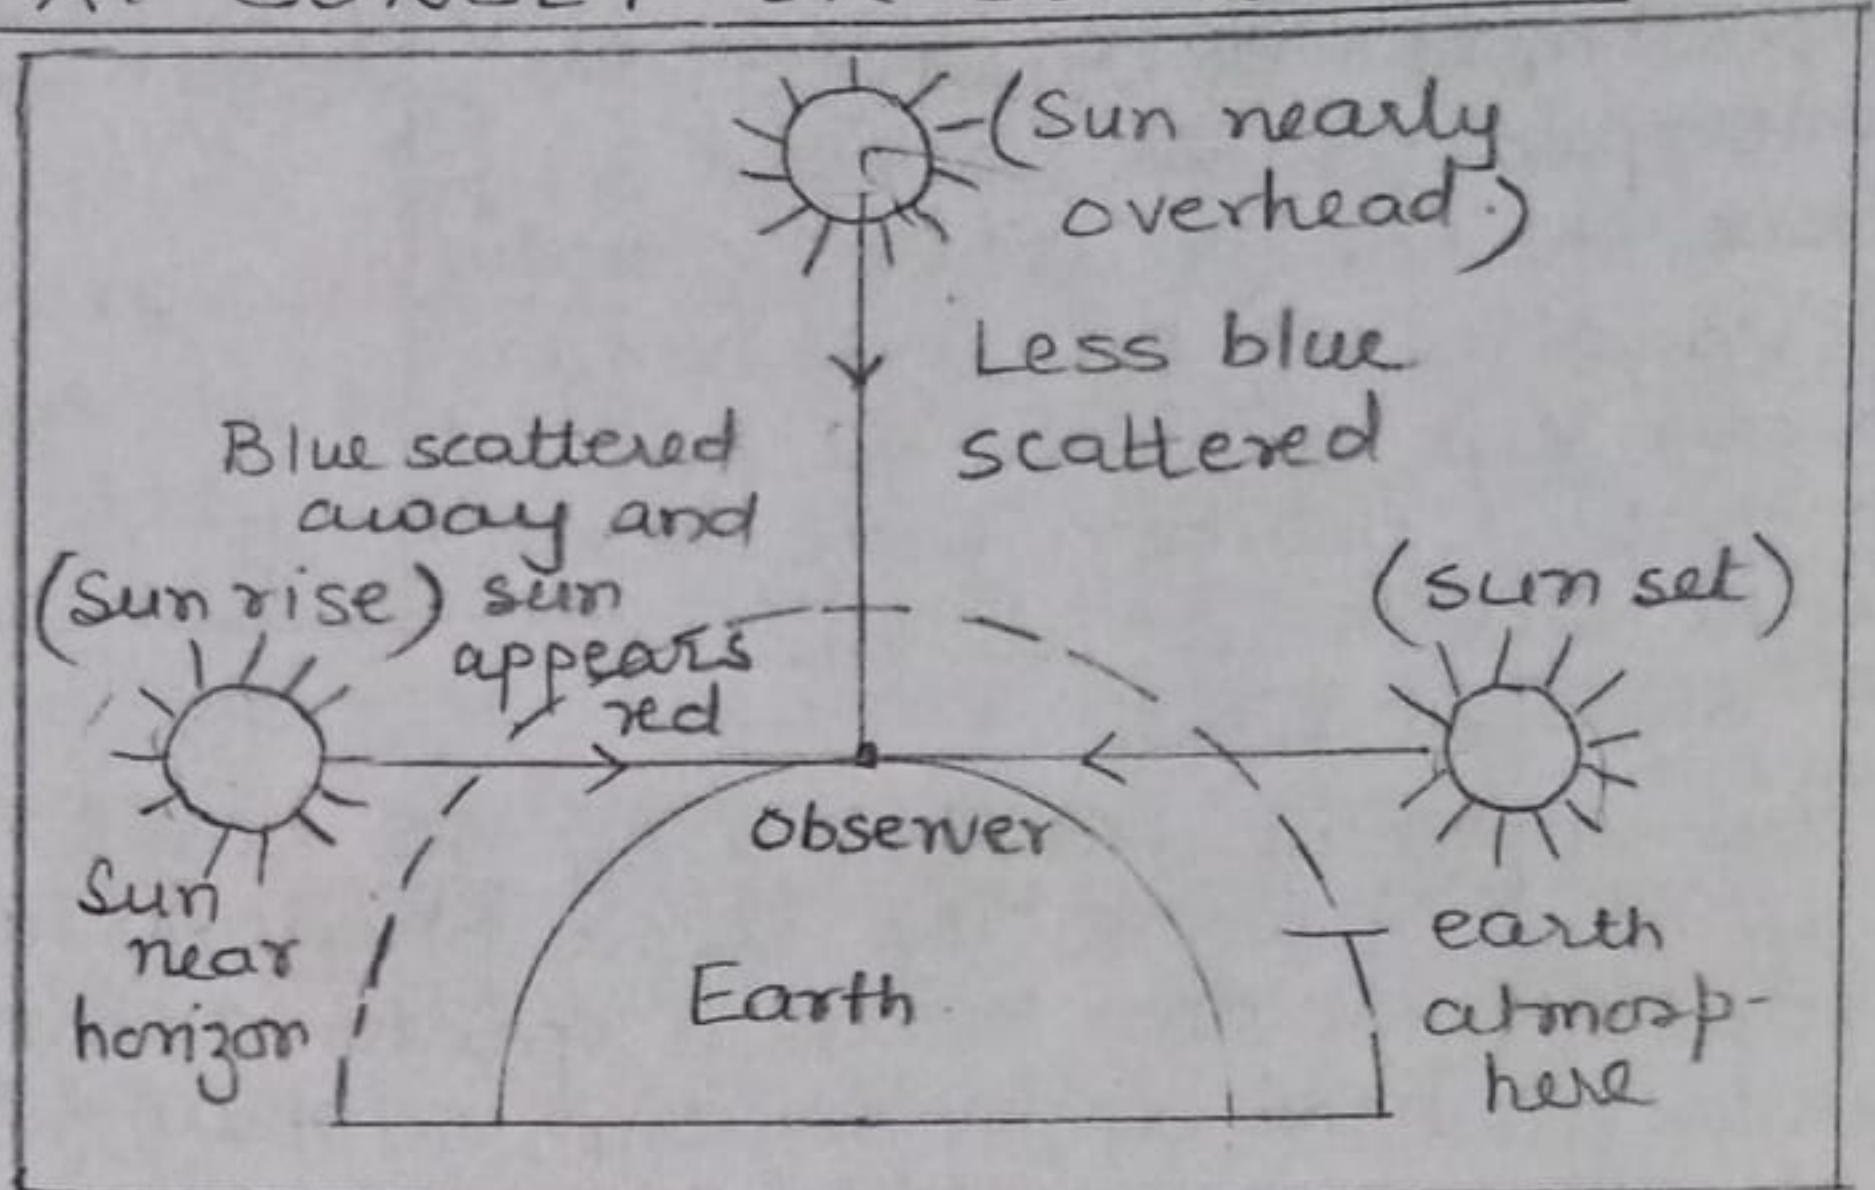 (Sun nearly
overhead.)
Less blue
scattered
Blue scattered
away and
(Sun rise) sun
appears
red
(Sun set)
observer
Sun
near
horizon
Earth
earth
atmosp-
here